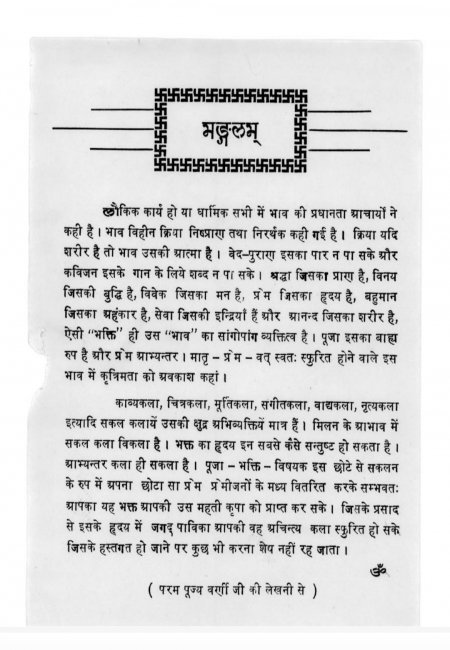 मङ्गलम्
लौकिक कार्य हो या धार्मिक सभी में भाव की प्रधानता आचार्यों ने
कही है । भाव विहीन क्रिया निष्प्राण तथा निरर्थक कही गई है । क्रिया यदि
शरीर है तो भाव उसकी आत्मा है । वेद-पुराण इसका पार न पा सके और
कविजन इसके गान के लिये शब्द न पा सके । श्रद्धा जिसका प्राण है, विनय
जिसकी बुद्धि है, विवेक जिसका मन है, प्रेम जिसका हृदय है, बहुमान
जिसका अहंकार है, सेवा जिसकी इन्द्रियाँ हैं और आनन्द जिसका शरीर है,
ऐसी “भक्ति” ही उस “भाव” का सांगोपांग व्यक्तित्व है । पूजा इसका बाह्य
रुप है और प्रेम आभ्यन्तर । मातृ – प्रेम – वत् स्वतः स्फुरित होने वाले इस
भाव में कृत्रिमता को अवकाश कहां ।
काव्यकला, चित्रकला, मूर्तिकला, संगीतकला, वाद्यकला, नृत्यकला
इत्यादि सकल कलायें उसकी क्षुद्र अभिव्यक्तियें मात्र हैं । मिलन के अभाव में
सकल कला विकला है । भक्त का हृदय इन सबसे कैसे सन्तुष्ट हो सकता है ।
आभ्यन्तर कला ही सकला है । पूजा – भक्ति – विषयक इस छोटे से सकलन
के रुप में अपना छोटा सा प्रेम प्रेमीजनों के मध्य वितरित करके सम्भवतः
आपका यह भक्त आपकी उस महती कृपा को प्राप्त कर सके । जिसके प्रसाद
से इसके हृदय में जगद् पाविका आपकी वह अचिन्त्य कला स्फुरित हो सके
जिसके हस्तगत हो जाने पर कुछ भी करना शेष नहीं रह जाता ।
ॐ
( परम पूज्य वर्णी जी की लेखनी से )